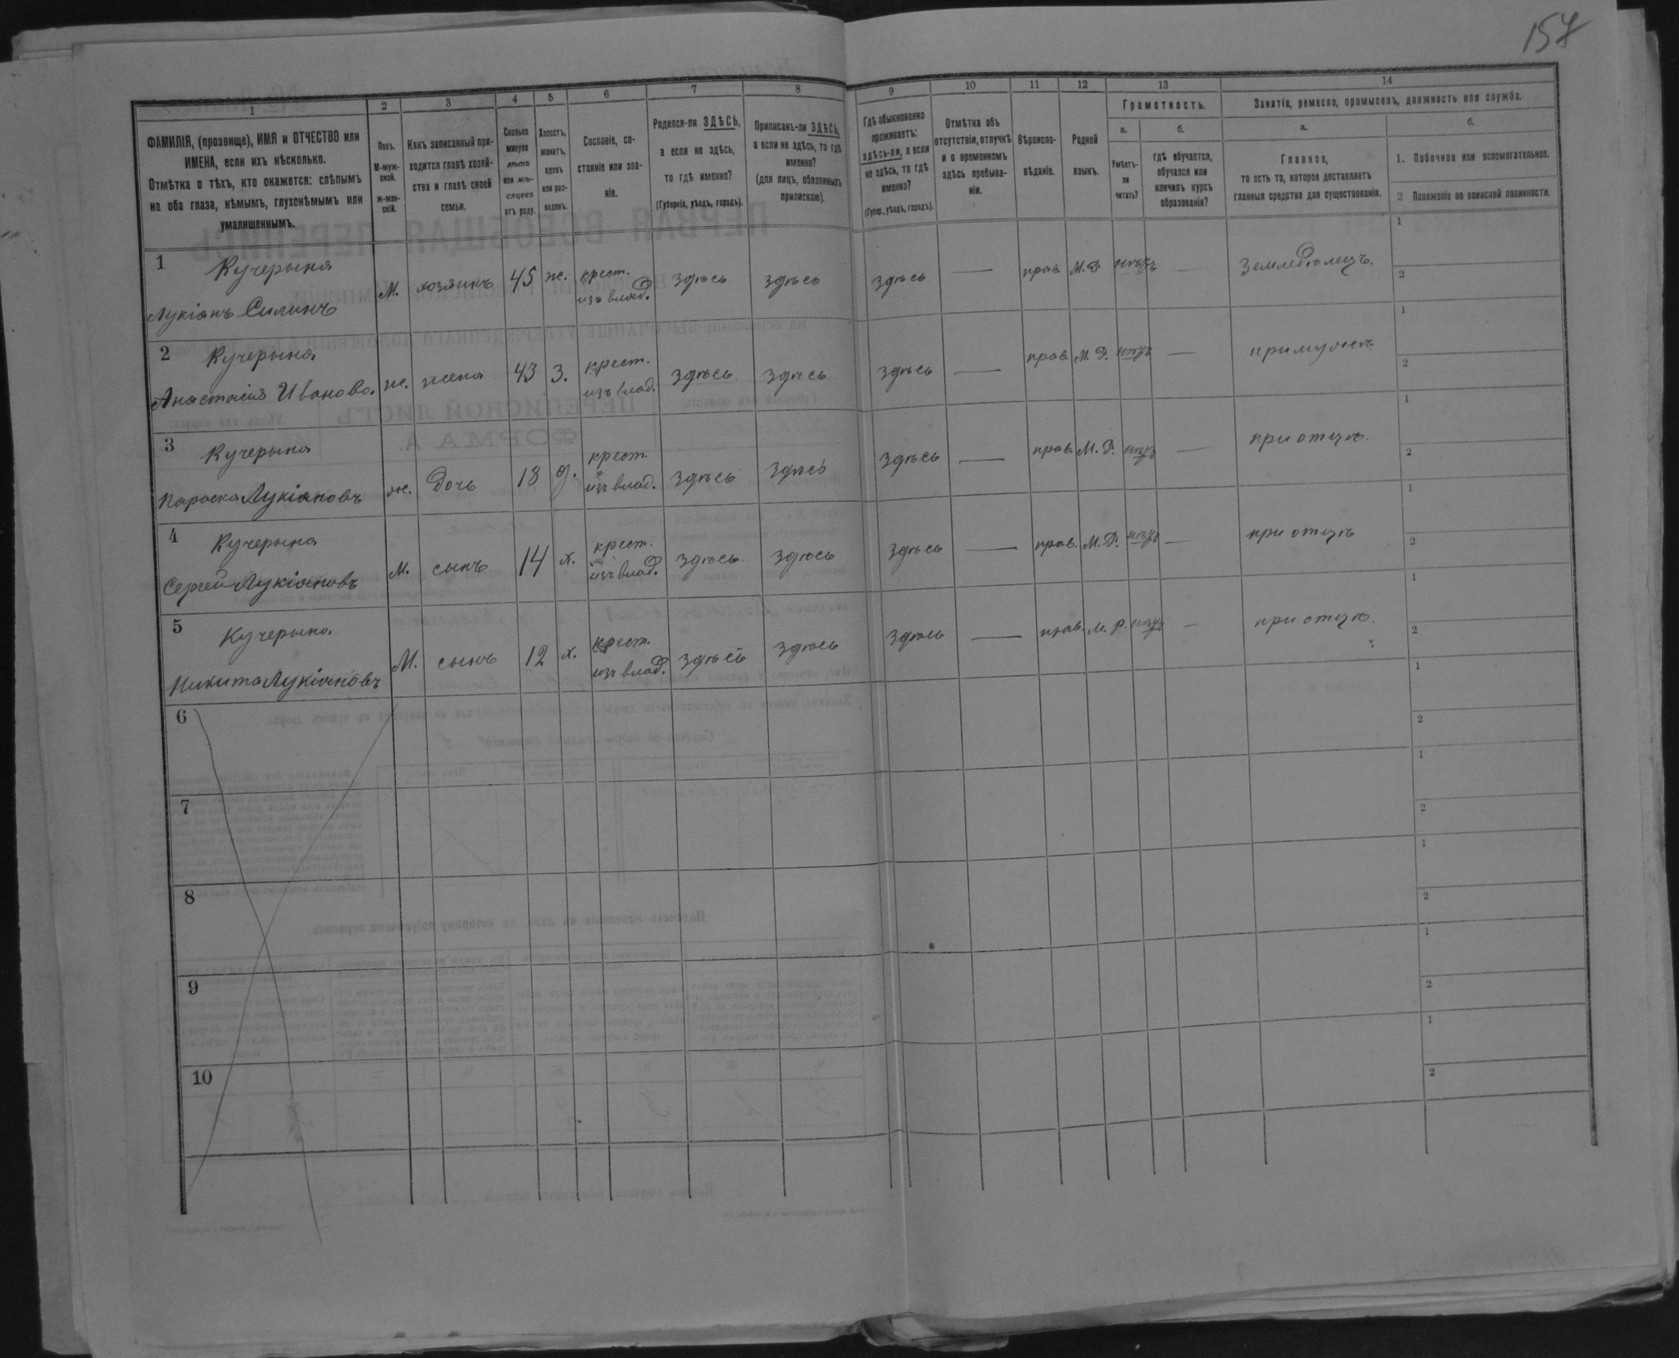 157
1
ФАМИЛІЯ, (прозвище), ИМЯ и ОТЧЕСТВО или
ИМЕНА, если ихъ нѣсколько.
Отмѣтка о тѣхъ, кто окажется: слѣпымъ
на оба глаза, нѣмымъ, глухонѣмымъ или
умалишеннымъ.
2
Полъ.
М-муж-
ской.
ж-жен-
скій.
3
Какъ записанный при-
ходится главѣ хозяй-
ства и главѣ своей
семьи.
4
Сколько
минуло
лѣтъ
или мѣ-
сяцевъ
отъ роду.
5
Холостъ,
женатъ,
вдовъ
или раз-
веденъ.
6
Сословіе, со-
стояніе или зва-
ніе.
7
Родился-ли ЗДѢСЬ,
а если не здѣсь,
то гдѣ именно?
(Губернія, уѣздъ, городъ).
8
Приписанъ-ли ЗДѢСЬ,
а если не здѣсь, то гдѣ
именно?
(для лицъ, обязанныхъ
припискою).
9
Гдѣ обыкновенно
проживаетъ:
здѣсь-ли, а если
не здѣсь, то гдѣ
именно?
(Губер., уѣздъ, городъ).
10
Отмѣтка объ
отсутствіи, отлучкѣ
и о временномъ
здѣсь пребыва-
ніи.
11
Вѣроиспо-
вѣданіе.
12
Родной
языкъ.
13
Грамотность.
а.
Умѣетъ-
ли
читать?
б.
гдѣ обучается,
обучался или
кончилъ курсъ
образованія?
14
Занятіе, ремесло, промыселъ, должность или служба.
а.
Главное,
то есть то, которое доставляетъ
главныя средства для существованія.
б.
1. Побочное или вспомогательное.
2 Положеніе по воинской повинности.
1 Кучерына
Лукіанъ Силинъ
М. хозяинъ 45 ж. крест. изъ влад. здѣсь здѣсь здѣсь — прав. М.Р. нѣтъ — Земледѣлецъ. 1 2
2 Кучерына
Анастасія Иванова.
ж. жена 43 З. крест. изъ влад. здѣсь здѣсь здѣсь — прав. М.Р. нѣтъ — при мужѣ 1 2
3 Кучерына
Параска Лукіановъ
ж. дочь 18 д. крест. изъ влад. здѣсь здѣсь здѣсь — прав. М.Р. нѣтъ — при отцѣ. 1 2
4 Кучерына
Сергей Лукіановъ
М. сынъ 14 х. крест. изъ влад. здѣсь здѣсь здѣсь — прав. М.Р. нѣтъ — при отцѣ 1 2
5 Кучерына
Никита Лукіановъ
М. сынъ 12 х. крест. изъ влад. здѣсь здѣсь здѣсь — прав. М.Р. нѣтъ — при отцѣ. 1 2
6 1 2
7 1 2
8 1 2
9 1 2
10 1 2